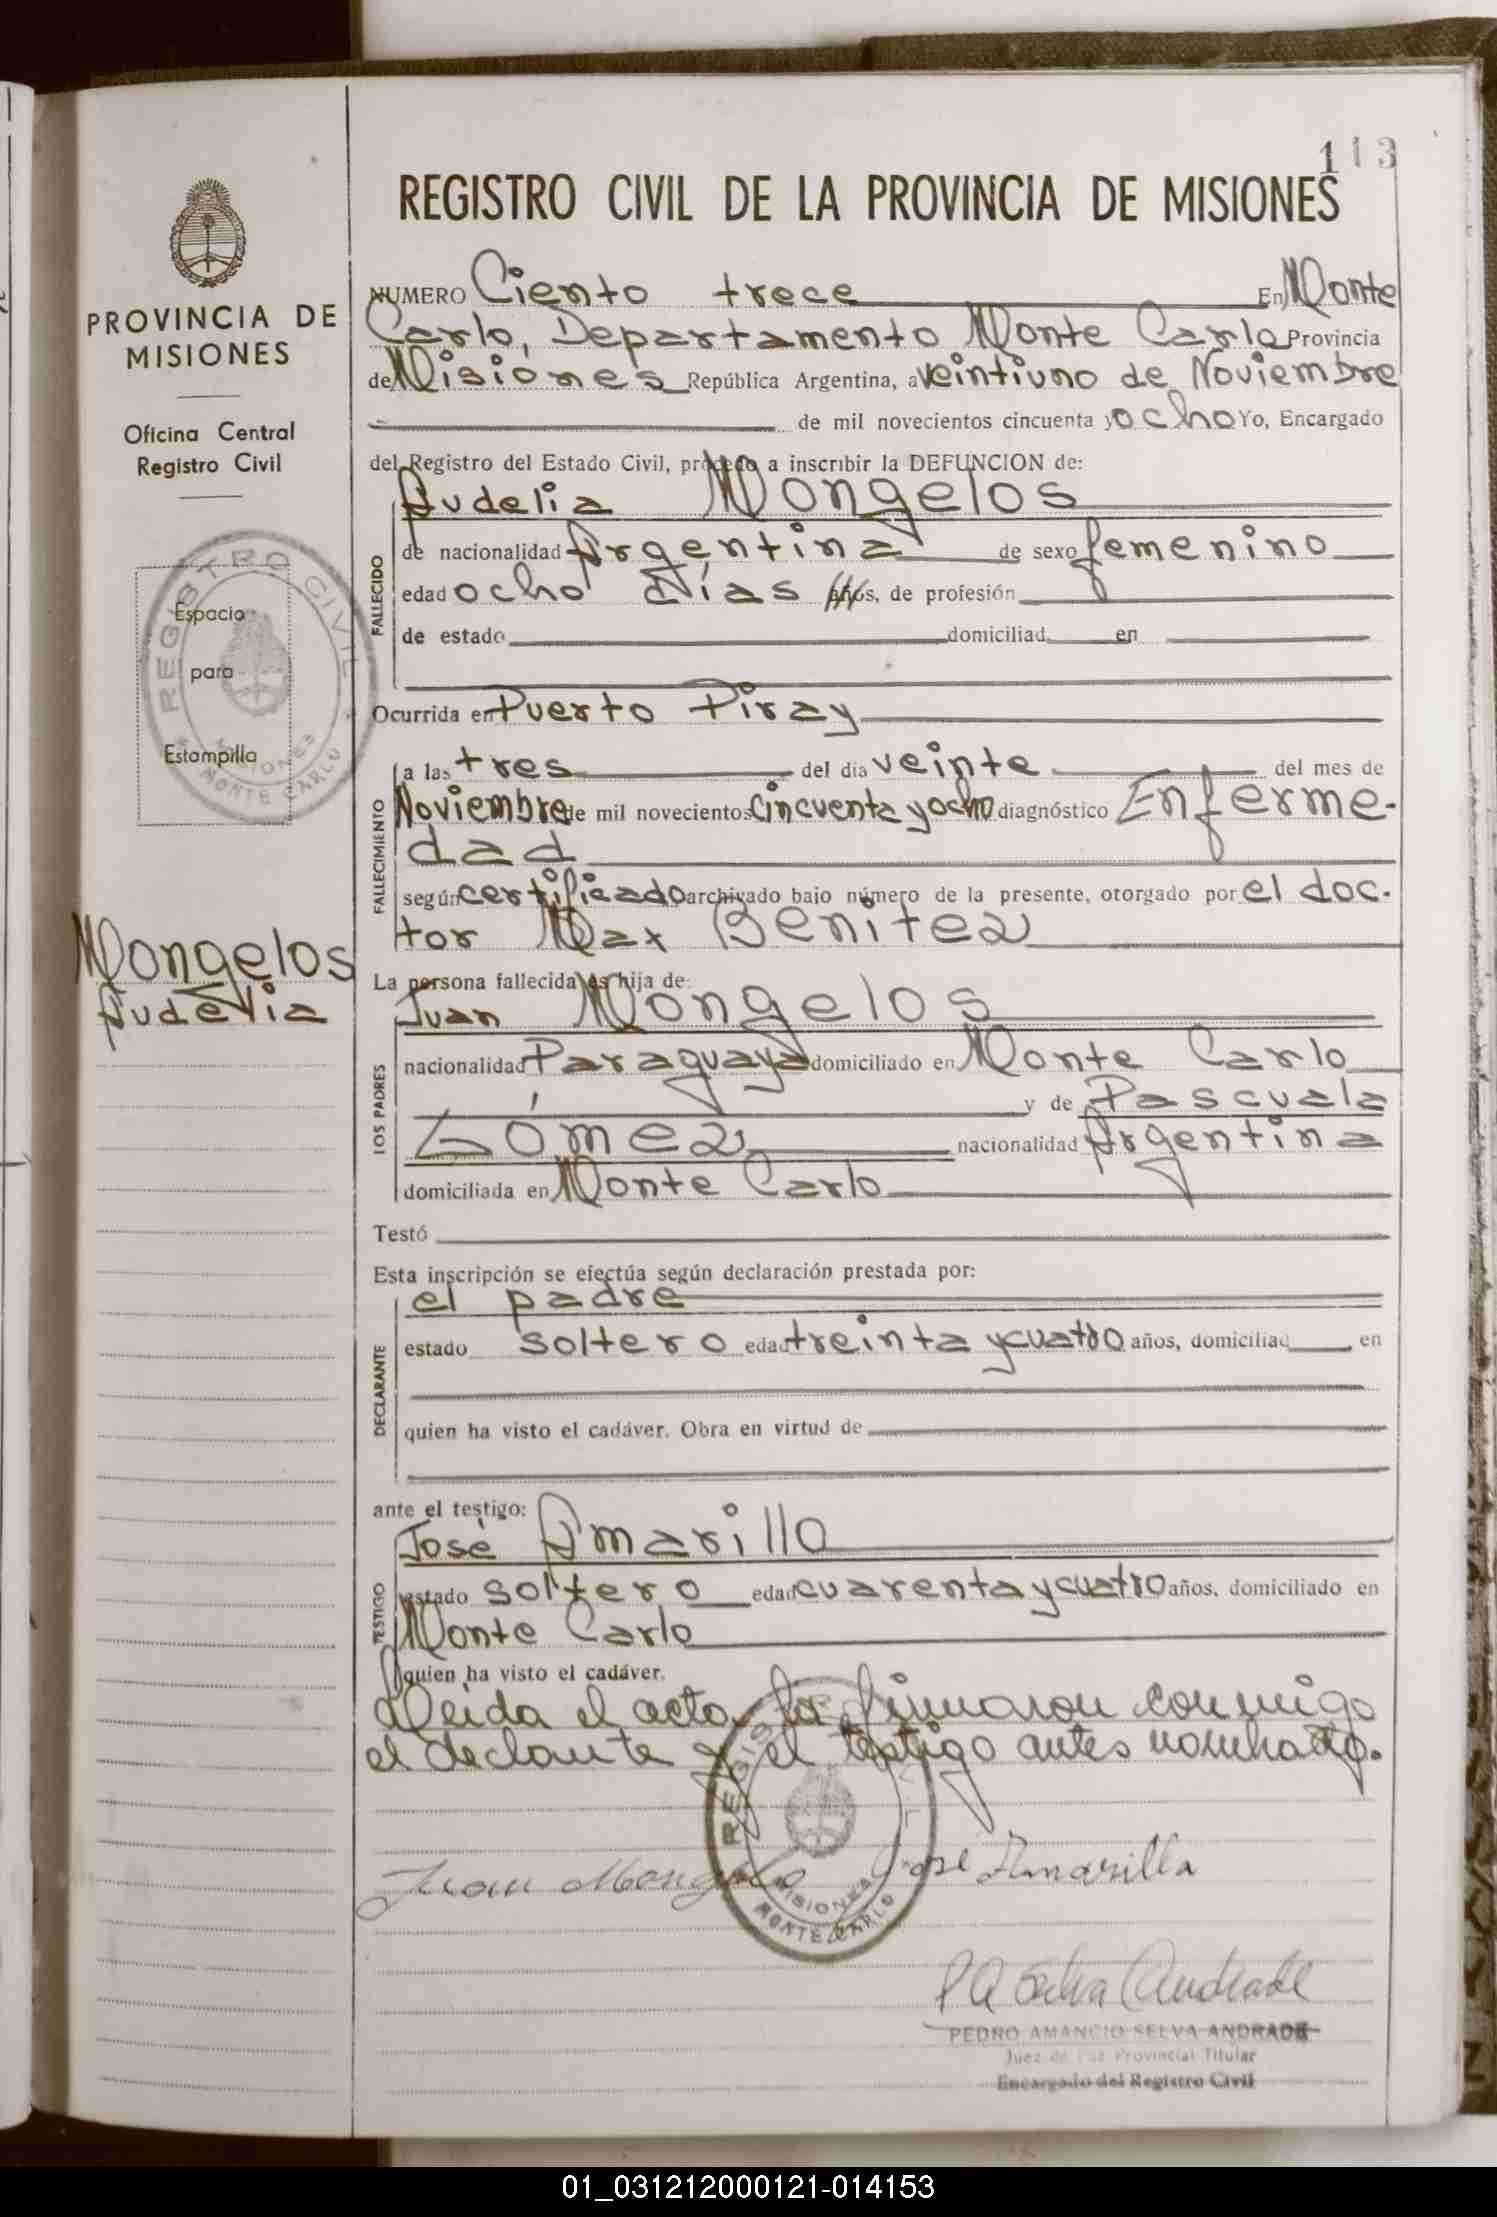 113
REGISTRO CIVIL DE LA PROVINCIA DE MISIONES
PROVINCIA DE
MISIONES
Oficina Central
Registro Civil
REGISTRO CIVIL
MISIONES
MONTE CARLO
Espacio
para
Estampilla
Mongelos
Audelia
NUMERO Ciento trece En Monte
Carlo, Departamento Monte Carlo Provincia
de Misiones República Argentina, a veintiuno de Noviembre
de mil novecientos cincuenta y ocho Yo, Encargado
del Registro del Estado Civil, procedo a inscribir la DEFUNCION de:
Audelia Mongelos
FALLECIDO
de nacionalidad Argentina de sexo femenino
edad ocho Días años, de profesión
de estado domiciliad en
Ocurrida en Puerto Piray
FALLECIMIENTO
a las tres del día veinte del mes de
Noviembre de mil novecientos cincuenta y ocho diagnóstico Enferme-
dad
según certificado archivado bajo número de la presente, otorgado por el doc-
tor Max Benitez
La persona fallecida es hija de:
Juan Mongelos
LOS PADRES
nacionalidad Paraguaya domiciliado en Monte Carlo
y de Pascuala
Lómez nacionalidad Argentina
domiciliada en Monte Carlo
Testó
Esta inscripción se efectúa según declaración prestada por:
el padre
DECLARANTE
estado soltero edad treinta y cuatro años, domiciliad en
quien ha visto el cadáver. Obra en virtud de
ante el testigo:
José Amarilla
TESTIGO
estado soltero edad cuarenta y cuatro años, domiciliado en
Monte Carlo
quien ha visto el cadáver.
Leida el acta, la firmaron conmigo
el declante y el testigo antes nombrado.
REGISTRO CIVIL
MISIONES
MONTE CARLO
Juan Mongelos José Amarilla
P A Selva Andrade
PEDRO AMANCIO SELVA ANDRADE
Juez de Paz Provincial Titular
Encargado del Registro Civil
01_031212000121-014153